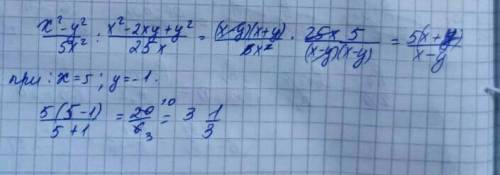 (x²-y²)/(5x²) : (x²-2xy+y²)/(25x) = ((x-y)(x+y))/(5x²) · (25x 5)/((x-y)(x-y)) = (5(x+y))/(x-y)
при: x=5; y=-1.
(5(5-1))/(5+1) = 20/6 ¹⁰ ₃ = 3 1/3